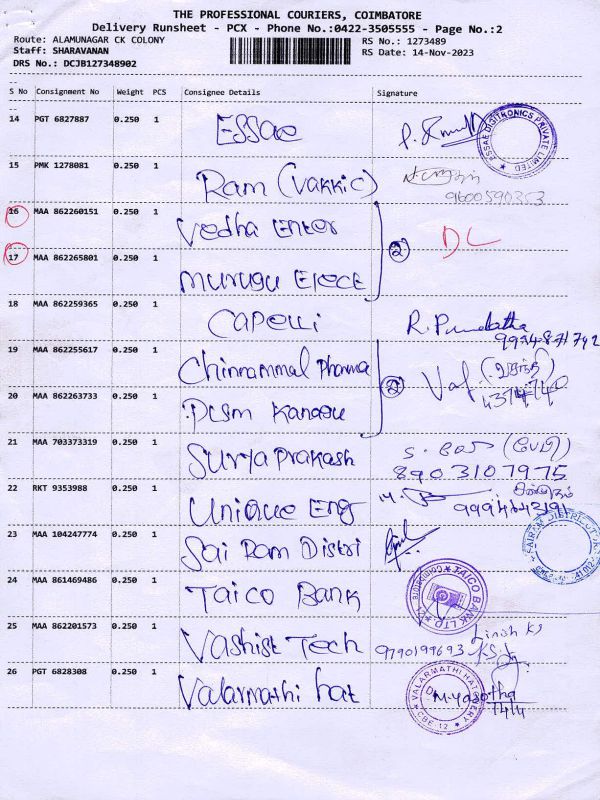 THE PROFESSIONAL COURIERS, COIMBATORE
Delivery Runsheet - PCX - Phone No.:0422-3505555 - Page No.:2
Route: ALAMUNAGAR CK COLONY RS No.: 1273489
Staff: SHARAVANAN RS Date: 14-Nov-2023
DRS No.: DCJB127348902
S No Consignment No Weight PCS Consignee Details Signature
14 PGT 6827887 0.250 1 ESSAE
ESSAE DIGITRONICS PRIVATE LIMITED
15 PMK 1278081 0.250 1 Ram (Vakkic)
9600590353
16 MAA 862260151 0.250 1 Vedha Enter
2 DL
17 MAA 862265801 0.250 1 Murugu Elect
18 MAA 862259365 0.250 1 Capelli R.
19 MAA 862255617 0.250 1 Chinnammal Pharma
2
20 MAA 862263733 0.250 1
21 MAA 703373319 0.250 1 Surya Prakash
8903107975
22 RKT 9353988 0.250 1 Unique Eng
9994643191
23 MAA 104247774 0.250 1 Sai Ram Distri
SAIRAM DISTRIBUTORS
24 MAA 861469486 0.250 1 Taico Bank
TAICO BANK LTD
25 MAA 862201573 0.250 1 Vashist Tech
9790199693
26 PGT 6828308 0.250 1 Valarmathi hat
VALARMATHI HATCHERY
CBE-12
M.Yasotha